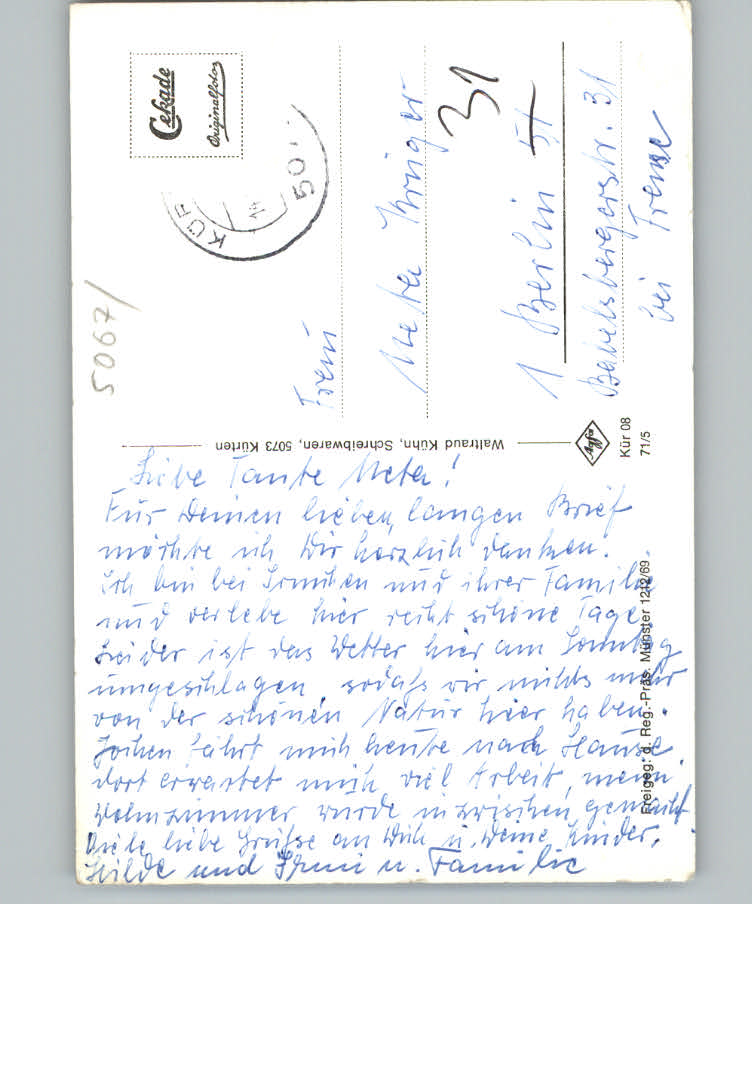 Cekade
Originalfoto
KÜR
50
5067/
Frau
Meta Krüger
31
1 Berlin 51
Babelsbergerstr. 31
bei Frense
Waltraud Kühn, Schreibwaren, 5073 Kürten
Agfa
Kür 08
71/5
Freigeg. d. Reg.-Präs. Münster 1212/69
Liebe Tante Meta!
Für Deinen lieben, langen Brief
möchte ich Dir herzlich danken.
Ich bin bei Irmchen und ihrer Familie
und verlebe hier recht schöne Tage
Leider ist das Wetter hier am Sonntag
umgeschlagen, sodaß wir nichts mehr
von der schönen Natur hier haben.
Jochen fährt mich heute nach Hause
dort erwartet mich viel Arbeit, mein
Wohnzimmer wurde inzwischen gemacht
Viele liebe Grüße an Dich u. Deine Kinder.
Hilde und Irmi u. Familie